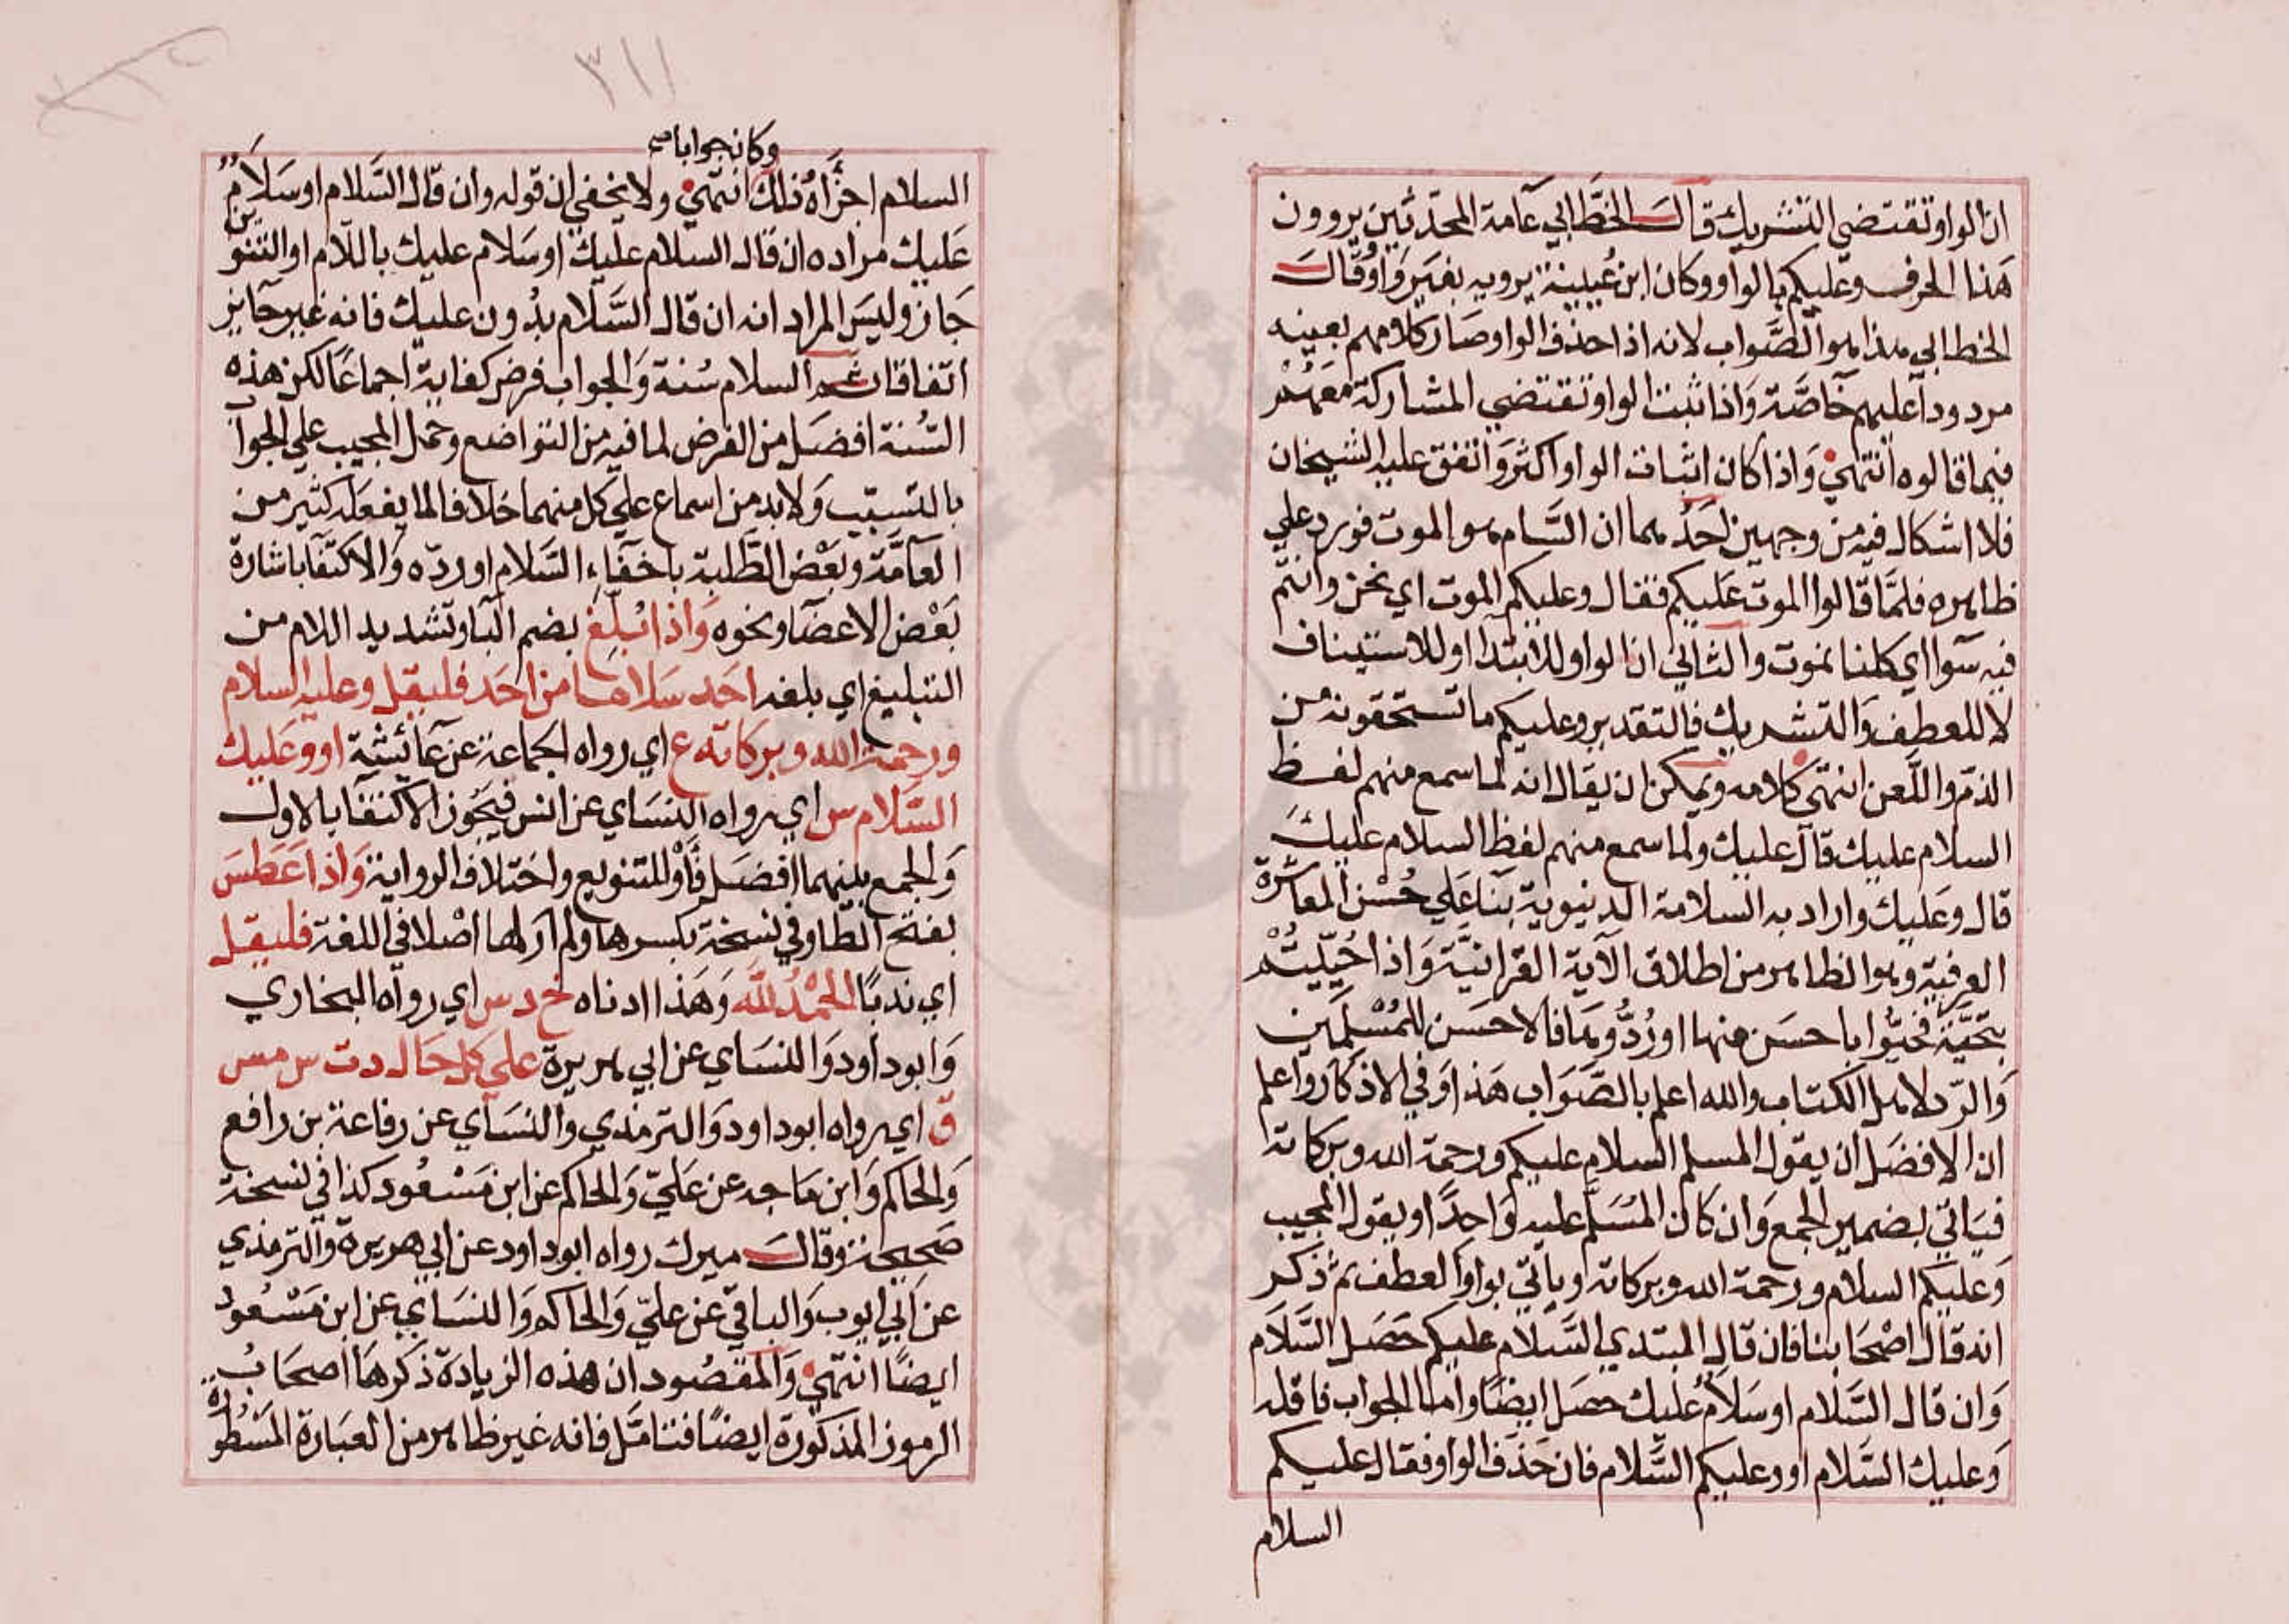 ان الواو تقتضي التشريك قال الخطابي عامة المحدثين يروون
هذا الحرف وعليكم بالواو وكان ابن عيينة يرويه بغير واو وقال
الخطابي هذا هو الصواب لانه اذا حذف الواو صار كلامهم بعينه
مردودا عليهم خاصة واذا ثبت الواو تقتضي المشاركة معهم
فيما قالوه انتهي واذا كان اثبات الواو اكثر واتفق عليه الشيخان
فلا اشكال فيه من وجهين احدهما ان السام هو الموت فورد علي
ظاهره فلما قالوا الموت عليكم فقال وعليكم الموت اي نحن وانتم
فيه سوا اي كلنا نموت والثاني ان الواو للابتدا او للاستيناف
لا للعطف والتشريك فالتقدير وعليكم ما تستحقونه من
الذم واللعن انتهي كلامه ويمكن ان يقال انه لما سمع منهم لفظ
السلام عليك قال عليك ولما سمع منهم لفظ السلام عليك
قال وعليك واراد به السلامة الدنيوية بنا علي حسن المعاشرة
العرفية وهو الظاهر من اطلاق الآية القرانية وَاذا حُيِّيتُمْ
بتحيَّة فحيُّوا باحسن منها او رُدُّوهَا فالاحسن للمُسْلمين
والرد لاهل الكتاب والله اعلم بالصَّوَاب هَذا وَفي الاذكار واعلم
ان الافضل ان يقول المسلم السلام عليكم ورحمة الله وبركاته
فيَاتي بضمير الجمع وَان كان المُسَلَّم عليه وَاحدًا ويقول المجيب
وَعليكم السلام ورحمة الله وبركاته ويأتي بواو العطف ثم ذكر
انه قال اصْحَابنا فان قال المبتدي السَّلام عليكم حصَل السَّلَام
وَان قال السَّلام او سَلاَمٌ عليك حصَل ايضًا واما الجواب فاقله
وَعليك السَّلام او وعليكم السَّلام فان حَذف الواو فقال عليكم
السلام
٣١١
وكان جوابا صح
السلام اجزَأهُ ذلك انتهي ولا يخفي ان قوله وان قال السَّلام او سَلاَمٌ
عَليك مراده ان قال السلام عليك او سَلام عليك باللام او التنوين
جَاز وليسَ المراد انه ان قال السَّلام بدُون عليك فانه غير جَايز
اتفاقا ثم السلام سُنة وَالجواب فرض كفاية اجماعًا لكن هذه
السُنة افضل من الفرض لما فيه من التواضع وحمل المجيب علي الجواب
بالتسبب وَلا بد من اسماع علي كل منهما خلافا لما يفعَله كثير من
العَامَّة وبَعْض الطَّلبة باخفَاء السَّلام او ردّه والاكتفَا باشارة
بَعْض الاعضَا ونحوه وَاذا بُلِّغ بضم البَا وتشديد اللام من
التبليغ اي بلغه احَد سَلامًا من احَد فليقل وعليه السلام
ورحمة الله وبركاته ع اي رواه الجماعة عن عَائشة او وَعَليك
السَّلام س اي رواه النسَاي عن انس فيَجُوز الاكتفا بالاول
وَالجمع بينهما افضَل فأوْ للتنويع واختلاف الرواية وَاذا عَطسَ
بفتح الطا وفي نسخة بكسرها ولم ار لها اصْلا في اللغة فليقل
اي ندبًا الحَمْدُ للَّه وَهَذا ادناه خ د س اي رواه البخاري
وَابوداود وَالنسَاي عن ابي هريرة علي كل حَال د ت س مس
ق اي رواه ابوداود وَالترمذي والنسَاي عن رفاعة بن رافع
وَالحاكم وَابن مَاجه عن عَليّ وَالحاكم عن ابن مَسْعُود كذا في نسخة
صَحيحة وقال ميرك رواه ابوداود عن ابي هريرة والترمذي
عن ابي ايوب وَالباقي عن عليّ وَالحاكم وَالنسَاي عن ابن مَسْعُود
ايضًا انتهي وَالمقصُود ان هذه الزيادة ذكرهَا اصحَابُ
الرموز المذكورة ايضًا فتامَّل فانه غير ظاهر من العبَارة المسْطُورة